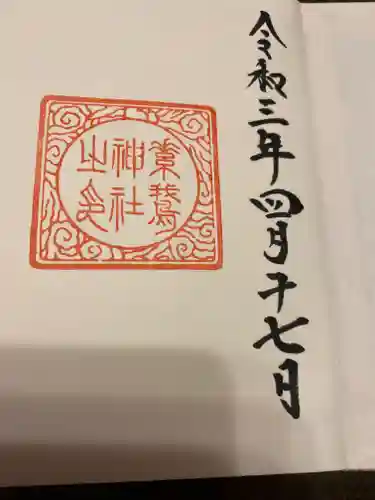 令和三年四月十七日
素鵞
神社
之印